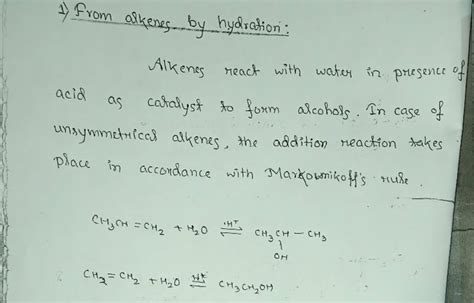 1) From alkenes by hydration:
Alkenes react with water in presence of
acid as catalyst to form alcohols. In case of
unsymmetrical alkenes, the addition reaction takes
place in accordance with Markownikoff's rule.
CH₃CH = CH₂ + H₂O ⇌ H⁺ CH₃ CH — CH₃
|
OH
CH₂ = CH₂ + H₂O ⇌ H⁺ CH₃CH₂OH